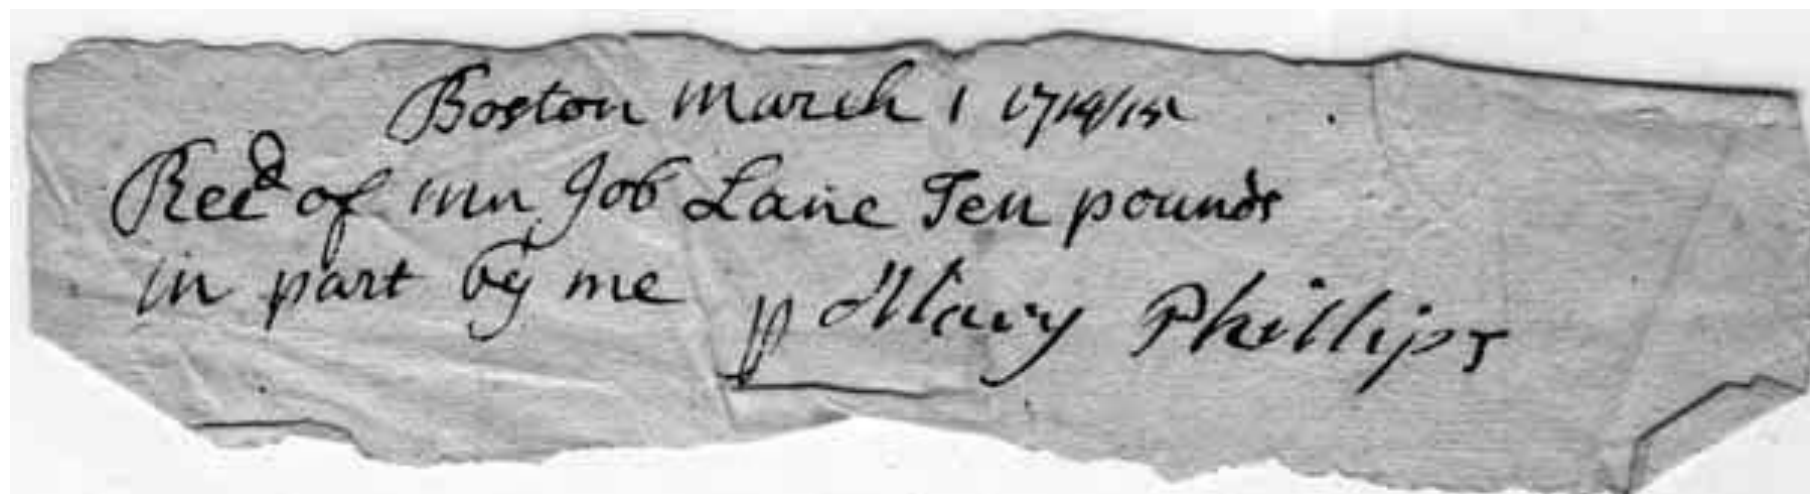 Boston March 1 1714/15
Recd of mr Job Lane Ten pounds
in part by me
p Mary Phillips